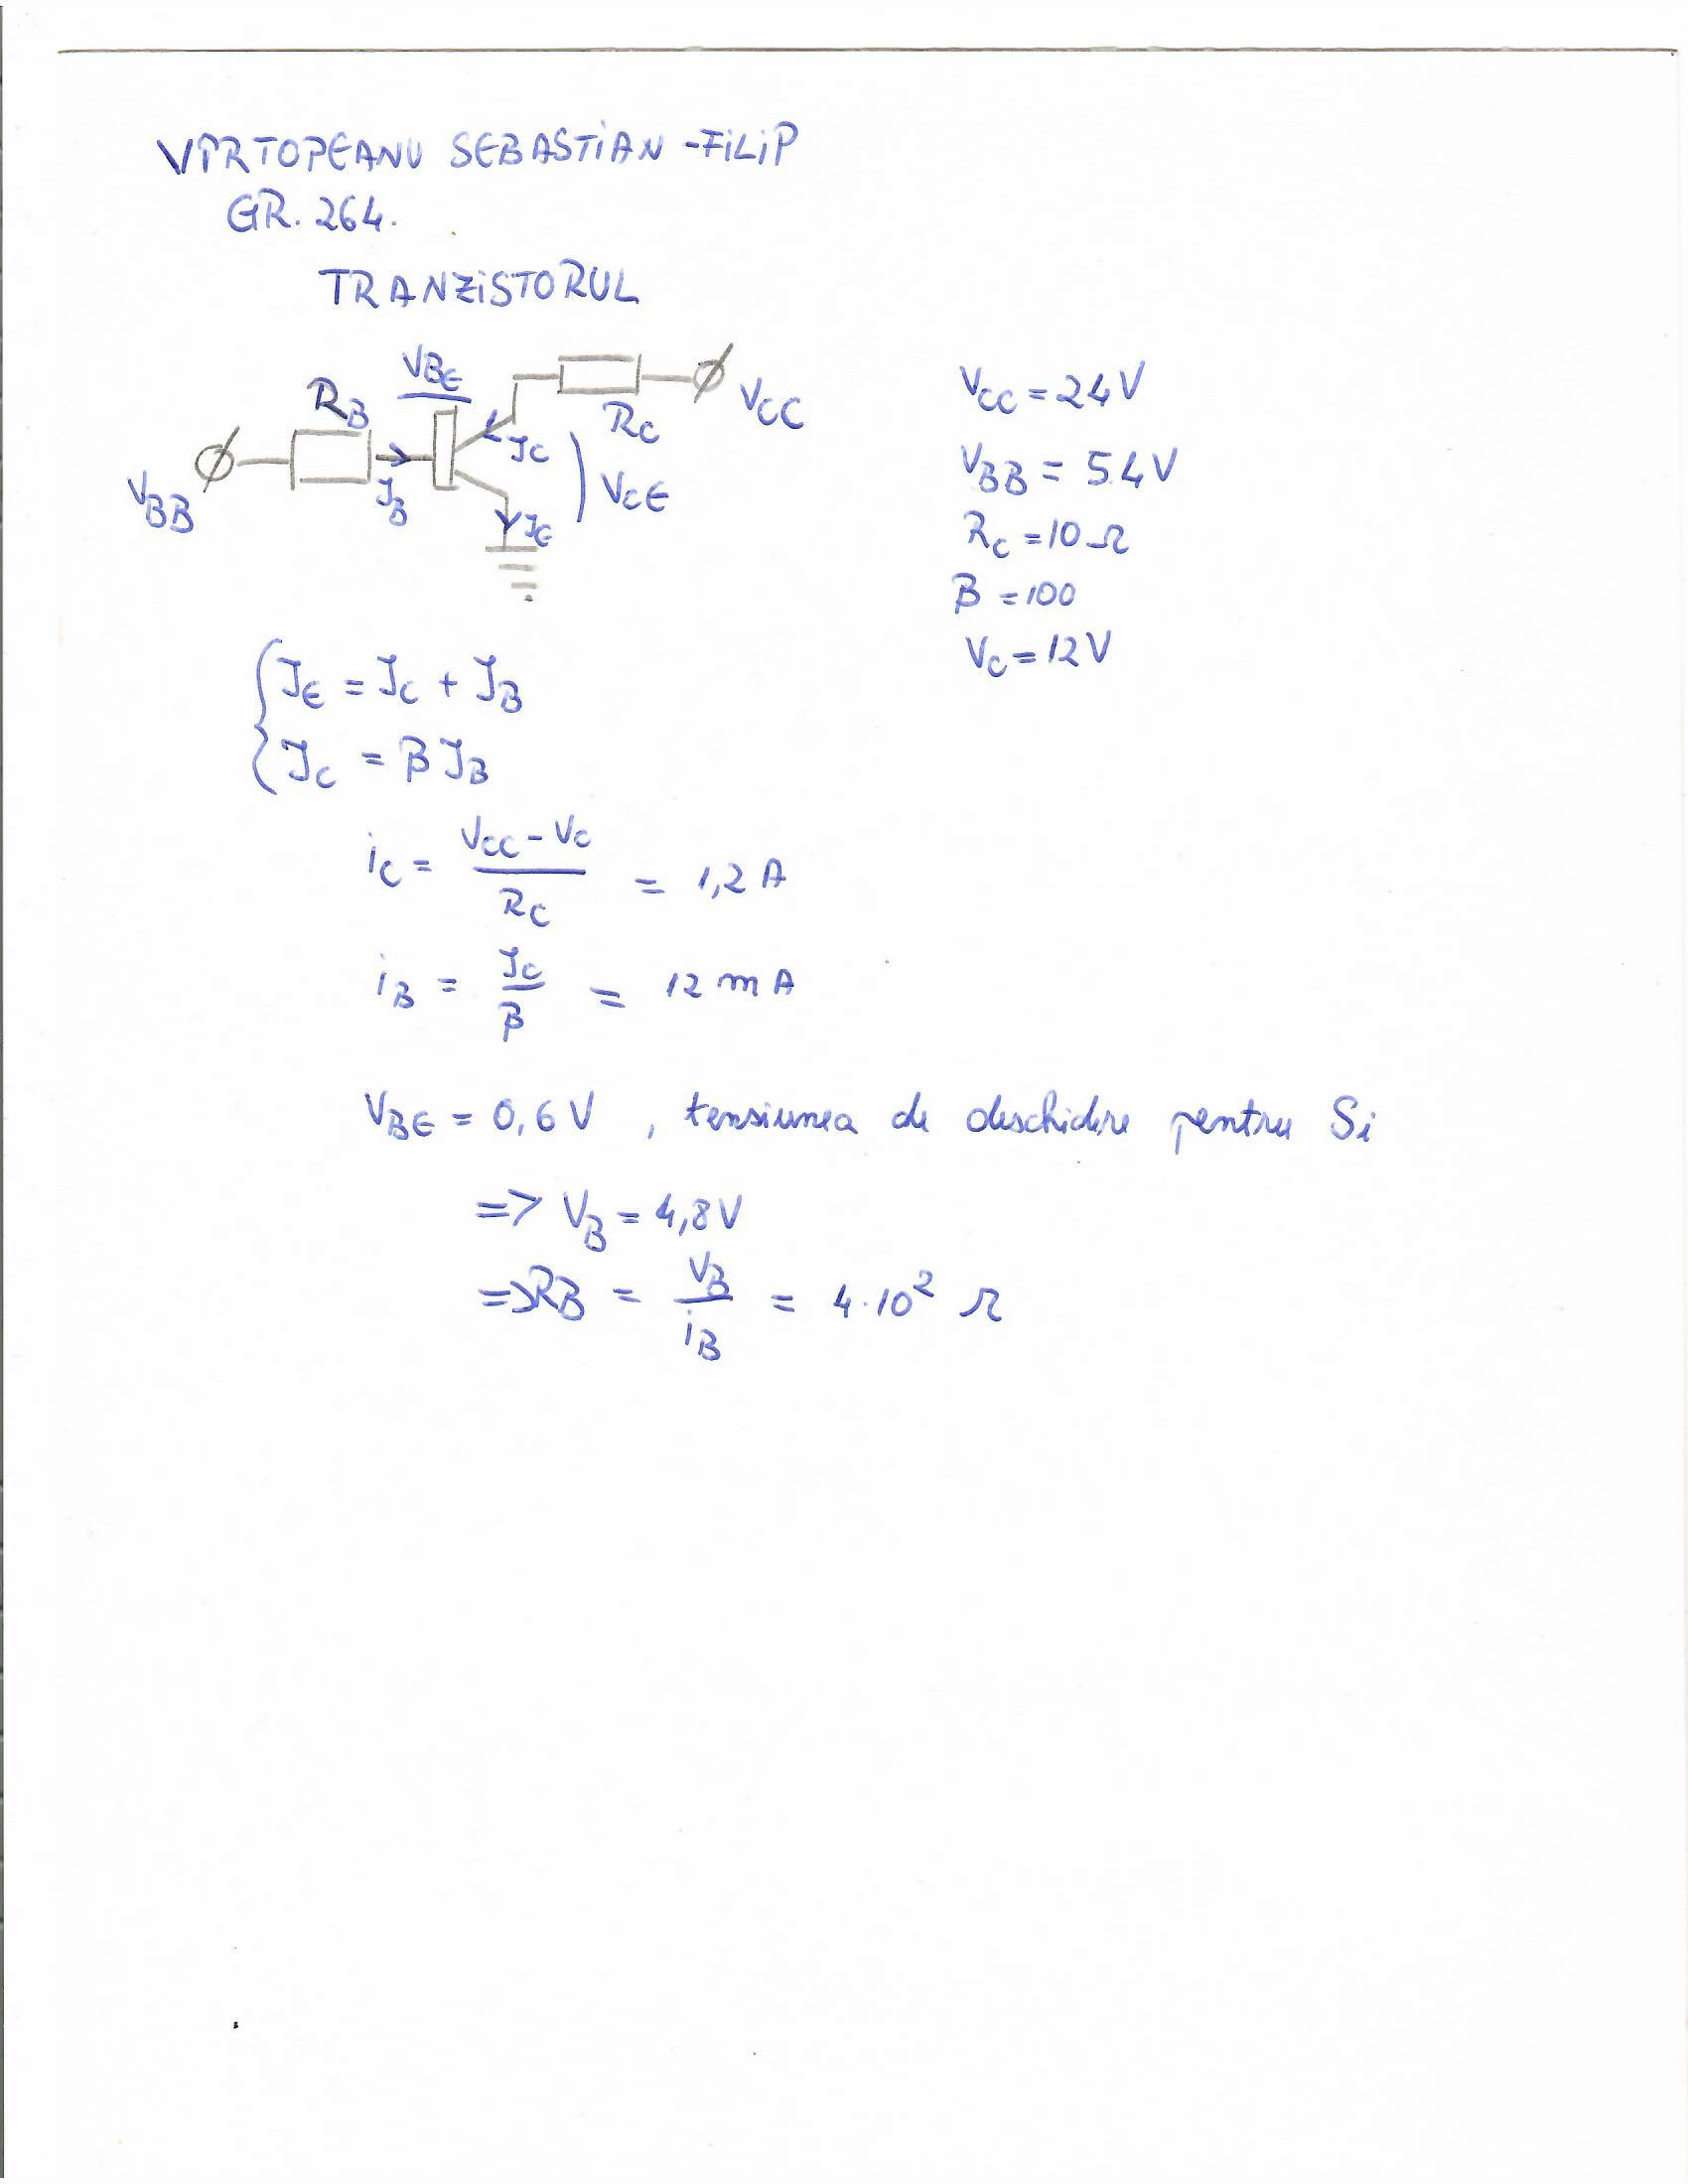 VÎRTOPEANU SEBASTIAN-FILIP
GR. 264.
TRANZISTORUL
VBE
RB
VCC
RC
IC
VBB
IB
VCE
IE
VCC = 24V
VBB = 5.4V
RC = 10 Ω
β = 100
VC = 12V
IE = IC + IB
IC = β IB
iC = (VCC - VC) / RC = 1,2 A
iB = IC / β = 12 mA
VBE = 0,6 V , tensiunea de deschidere pentru Si
=> VB = 4,8V
=> RB = VB / iB = 4·10² Ω